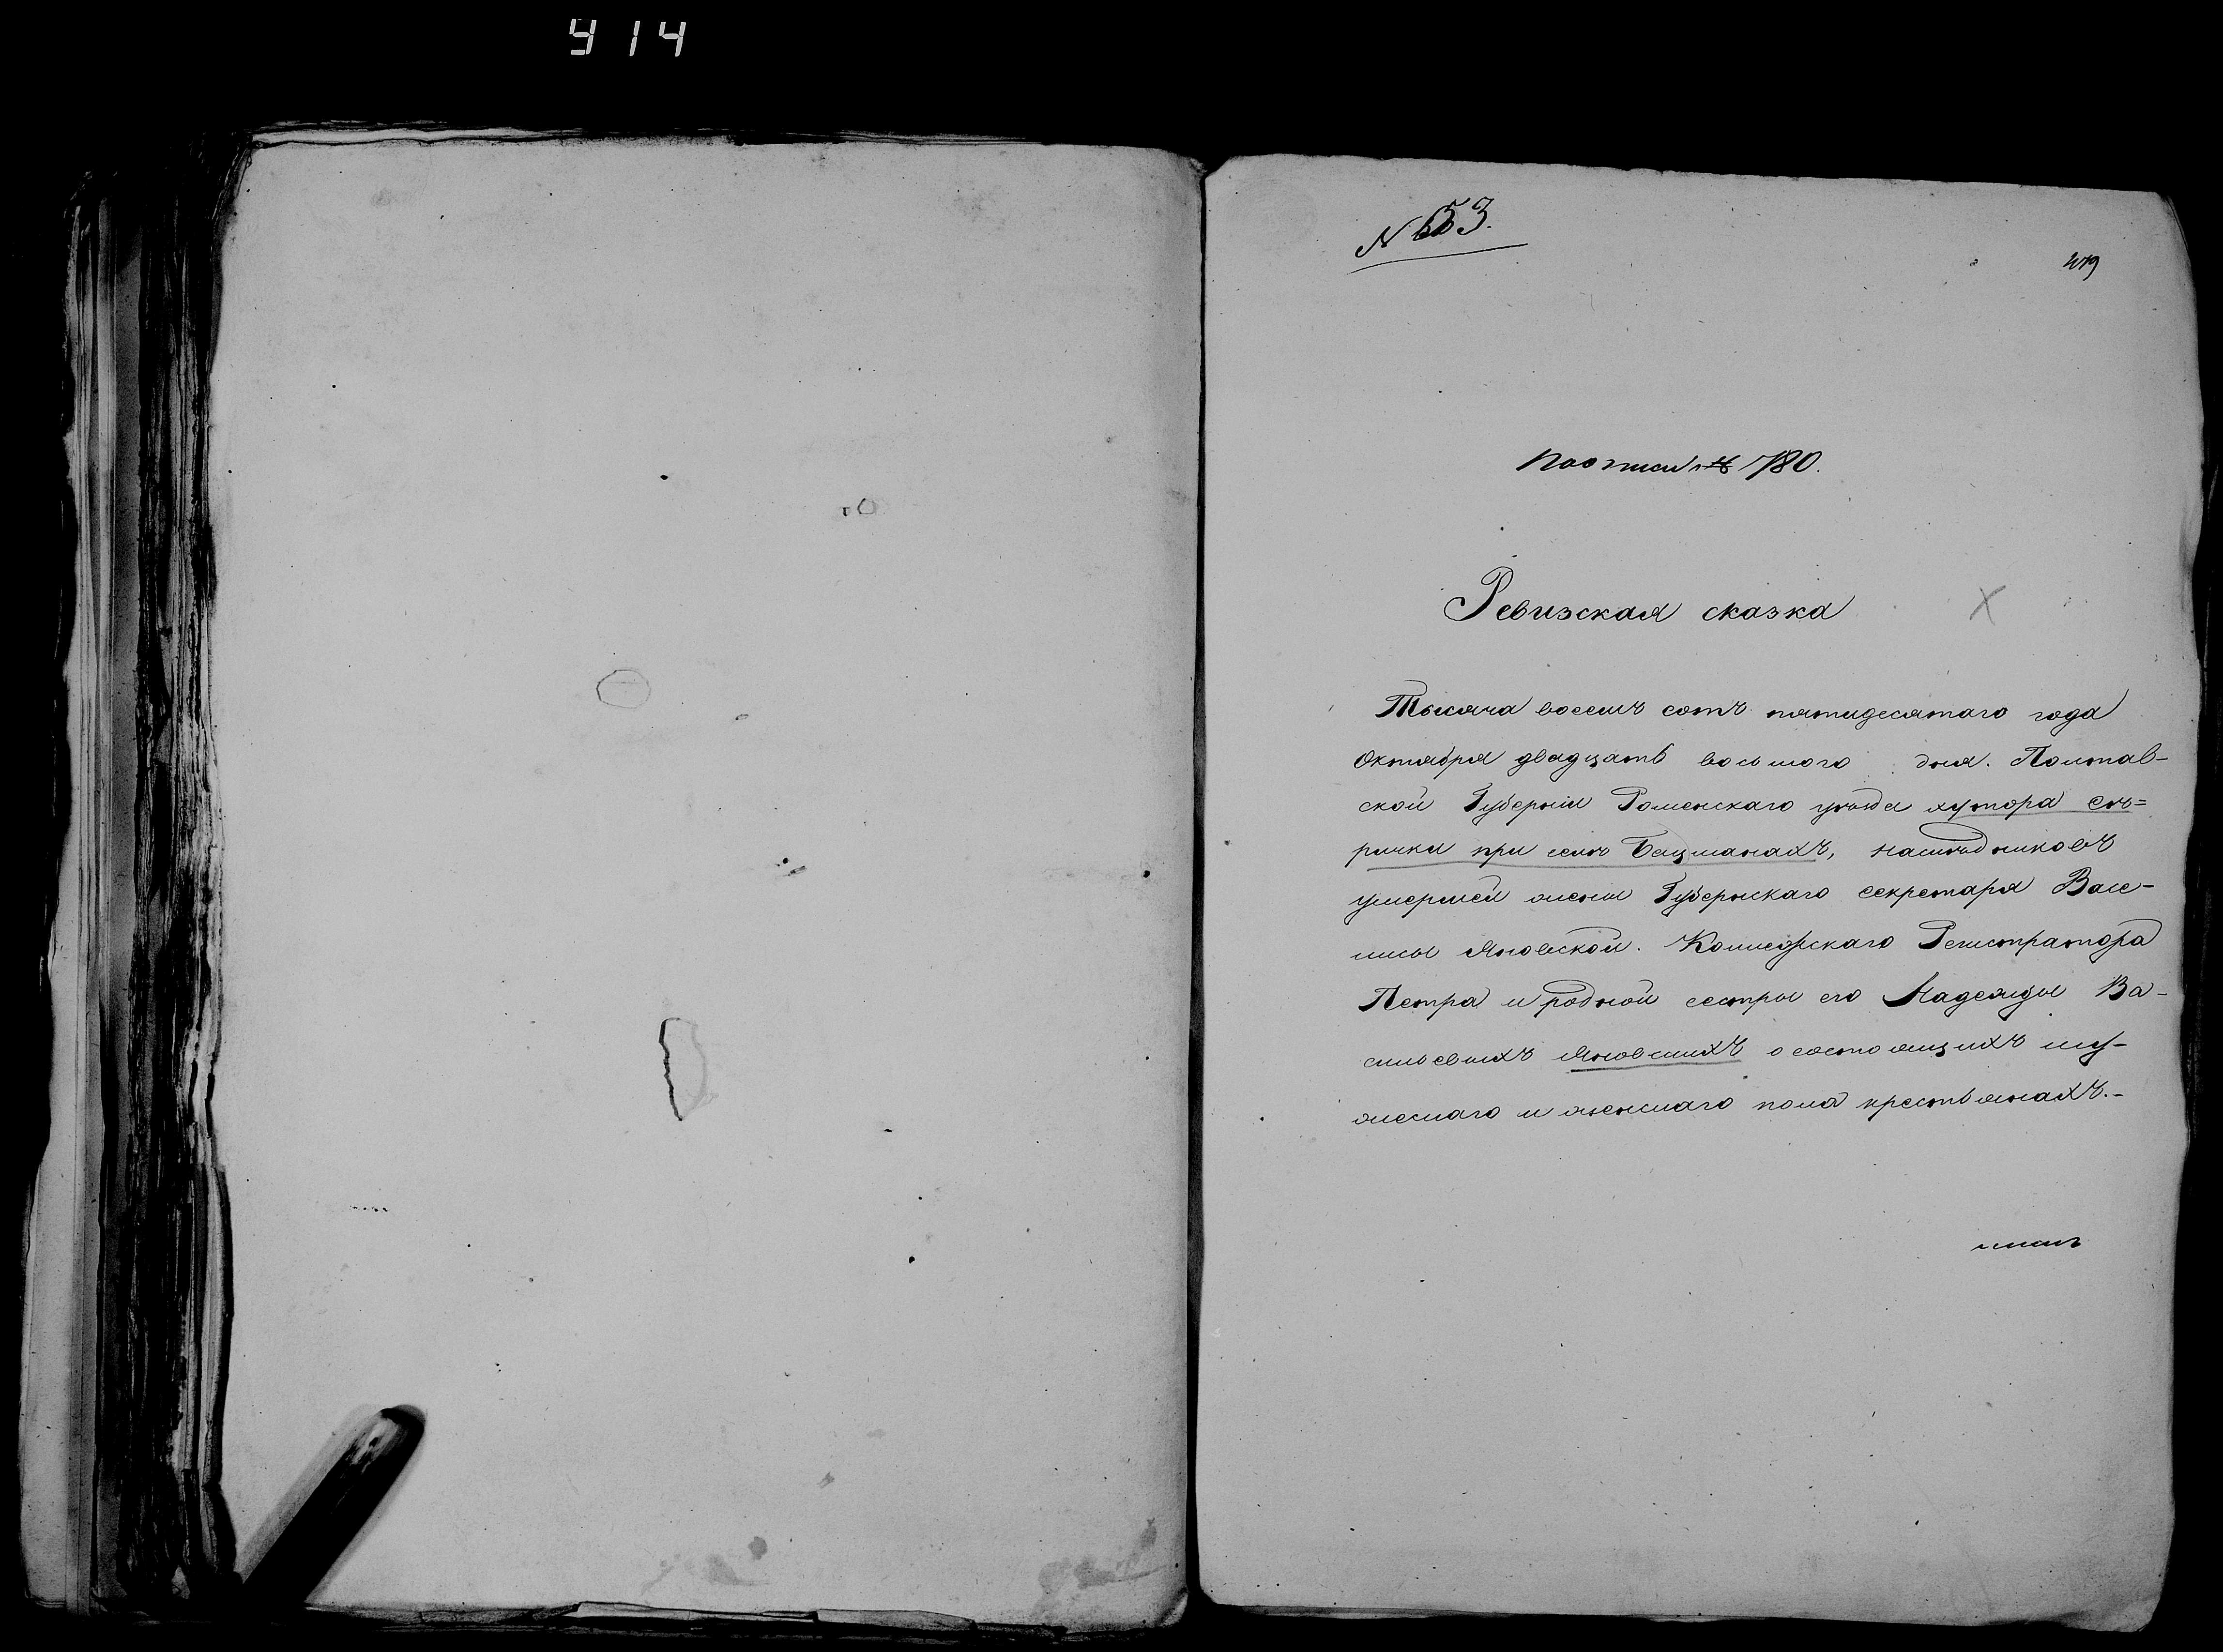 914
N 553.
419
По описи № 780.
Ревизская сказка
Тысяча восемь сотъ пятидесятаго года
Октября двадцать восьмаго дня. Полтав-
ской Губерніи Роменскаго уѣзда хутора
рички при селѣ Бацманахъ, наслѣдниковъ
умершей жены Губернскаго секретаря Васе-
лисы Яновской. Коллежскаго Регистратора
Петра и родной сестры его Надежды Ва-
сильевыхъ Яновскихъ о состоящихъ му-
жескаго и женскаго пола крестьянахъ.-